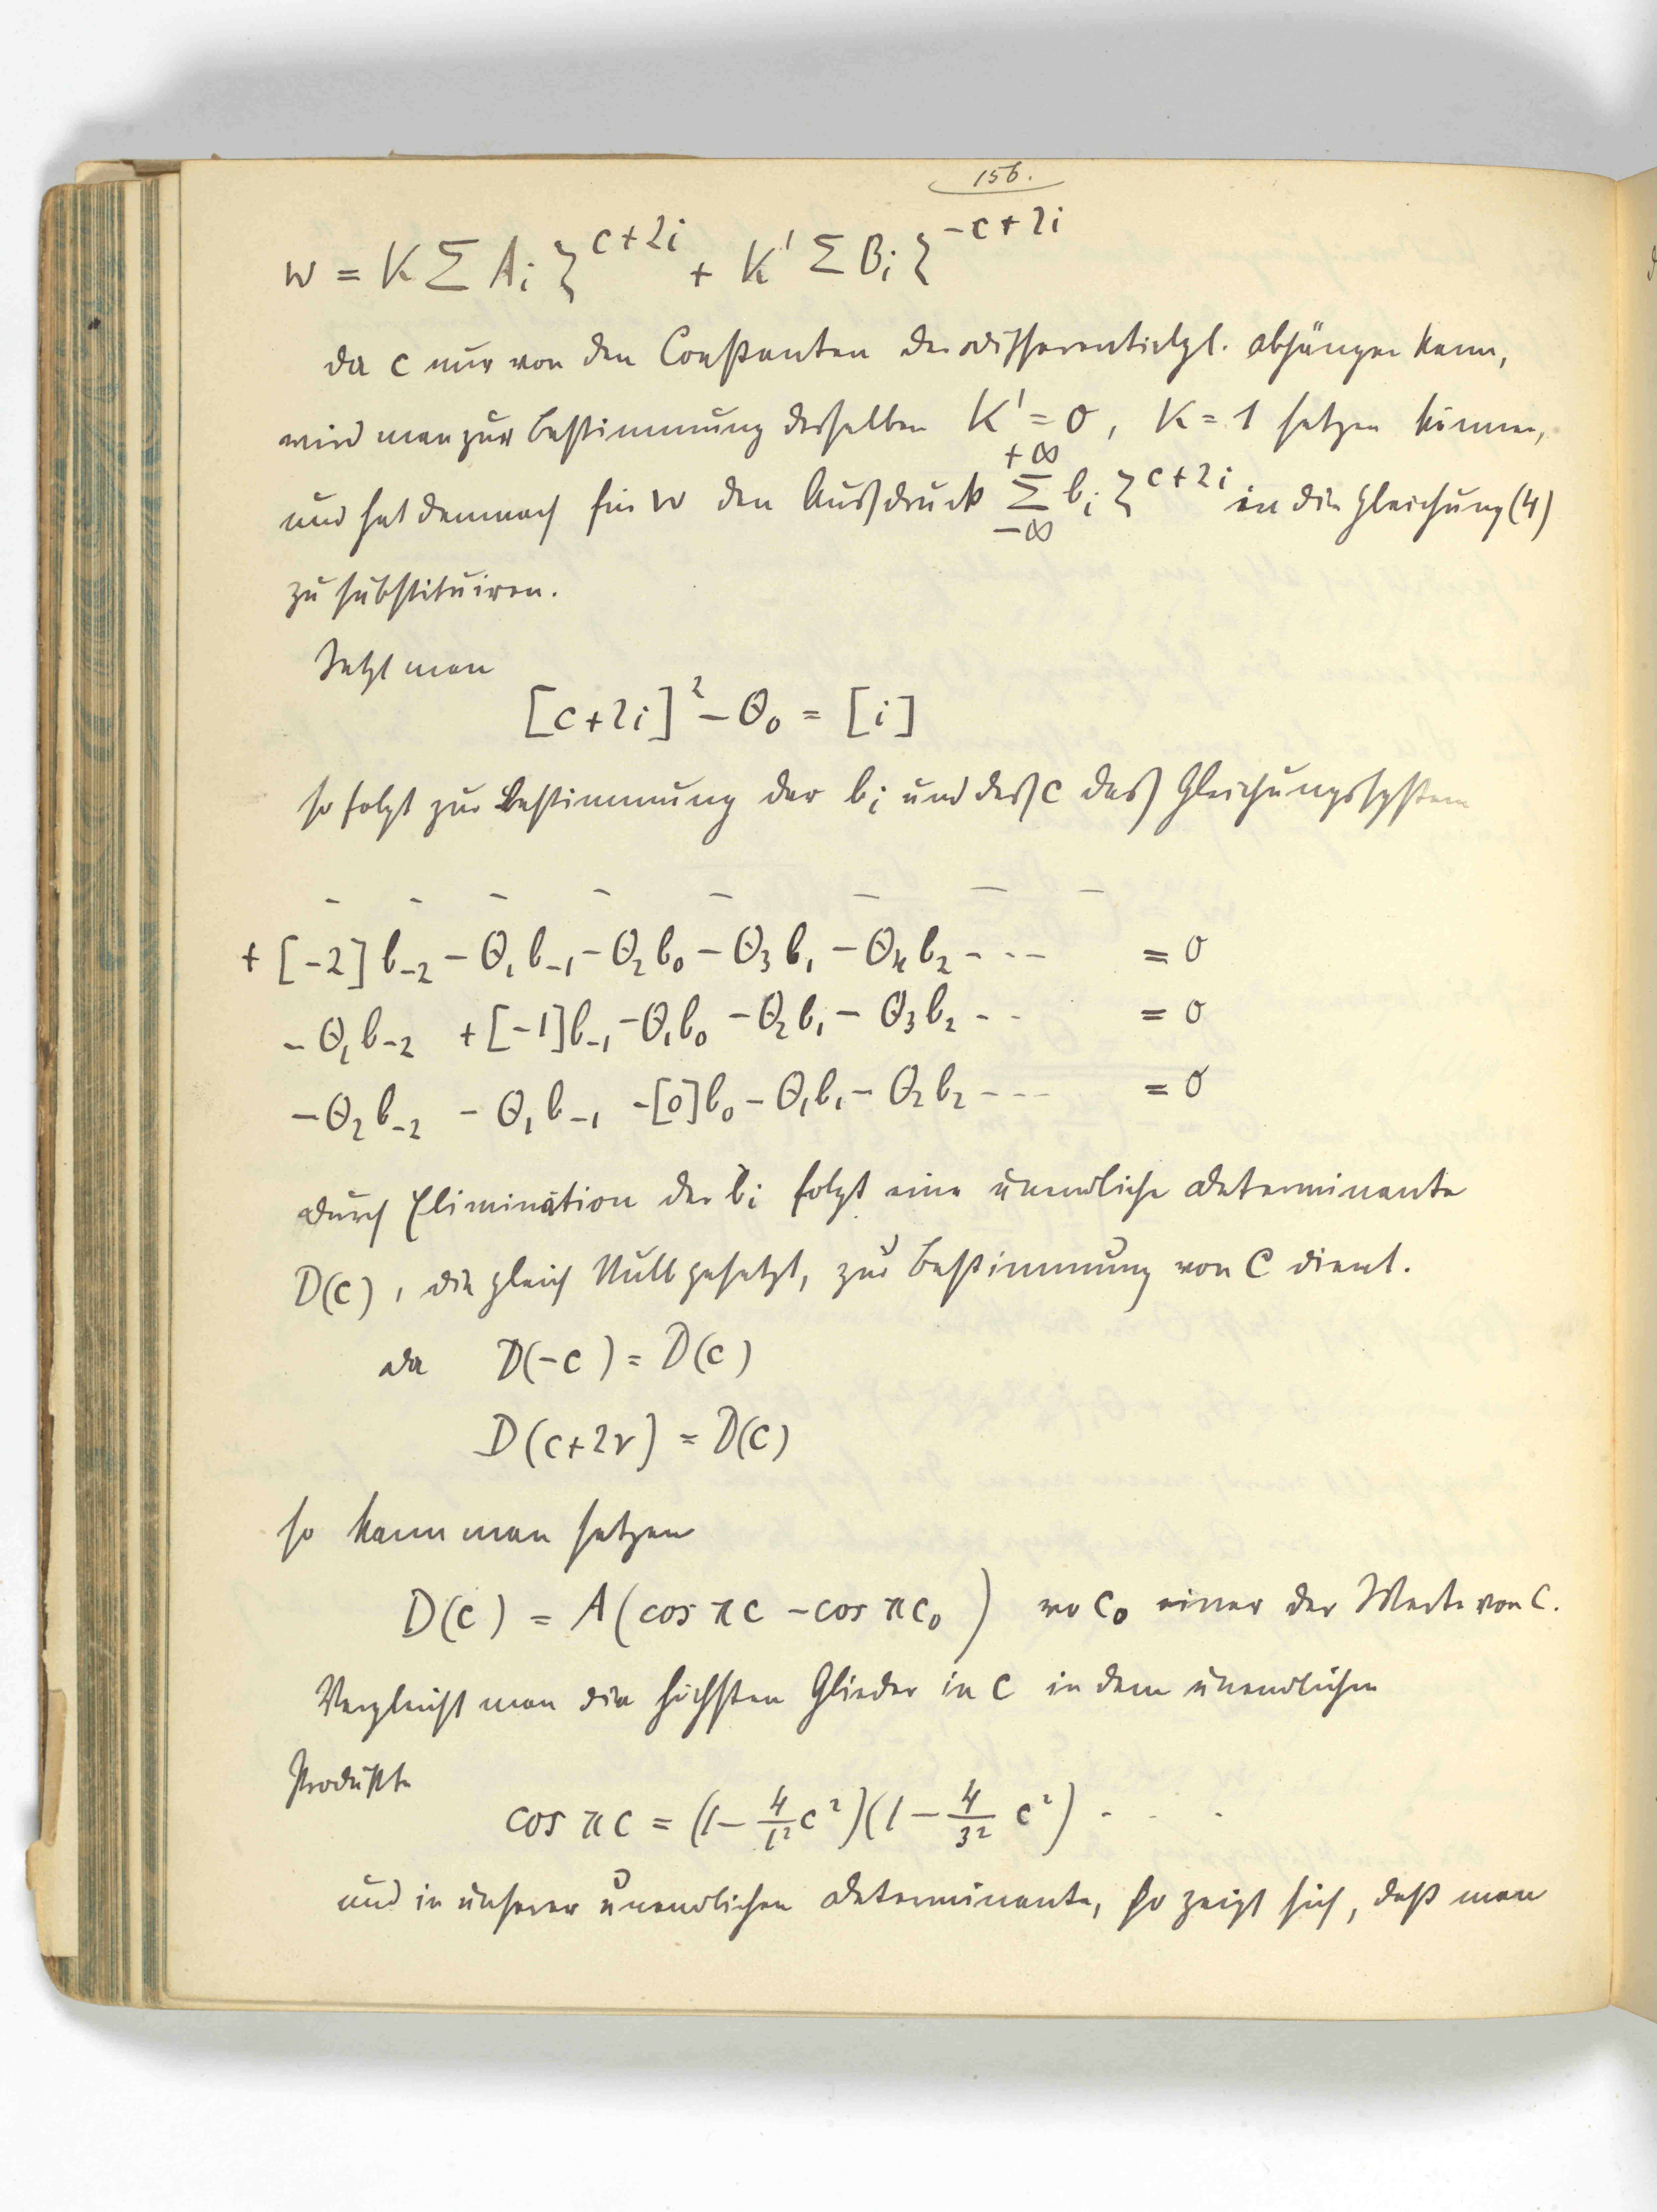 156.
w = K Σ A_i ζ^{c+2i} + K' Σ B_i ζ^{-c+2i}
Da c nur von den Constanten der Differentialgl. abhängen kann,
wird man zur Bestimmung desselben K' = 0, K = 1 setzen können,
und hat demnach für w den Ausdruck Σ_{-∞}^{+∞} b_i ζ^{c+2i} in die Gleichung (4)
zu substituiren.
Setzt man
[c+2i]² - Θ₀ = [i]
so folgt zur Bestimmung der b_i und des c das Gleichungssystem
- - - - - - - -
+ [-2] b₋₂ - Θ₁ b₋₁ - Θ₂ b₀ - Θ₃ b₁ - Θ₄ b₂ - - - = 0
- Θ₁ b₋₂ + [-1] b₋₁ - Θ₁ b₀ - Θ₂ b₁ - Θ₃ b₂ - - = 0
- Θ₂ b₋₂ - Θ₁ b₋₁ - [0] b₀ - Θ₁ b₁ - Θ₂ b₂ - - - = 0
Durch Elimination der b_i folgt eine unendliche Determinante
D(c), die gleich Null gesetzt, zur Bestimmung von c dient.
Da D(-c) = D(c)
D(c+2ν) = D(c)
so kann man setzen
D(c) = A(cos πc - cos πc₀) wo c₀ einer der Werte von c.
Vergleicht man die höchsten Glieder in c in dem unendlichen
Produkte
cos πc = (1 - 4/1² c²)(1 - 4/3² c²) . . .
und in unserer unendlichen Determinante, so zeigt sich, daß man